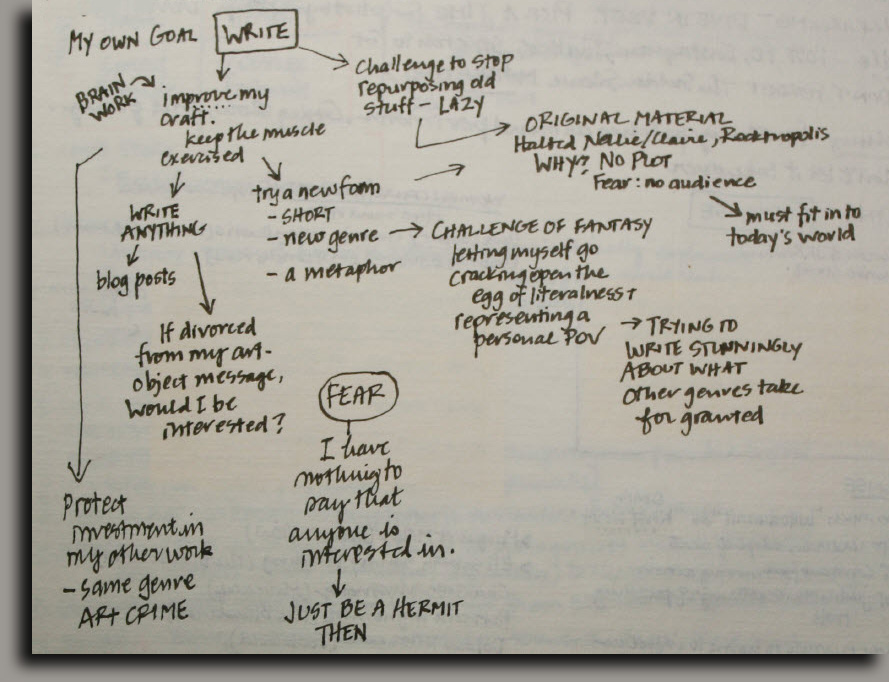 MY OWN GOAL WRITE
BRAIN
WORK
improve my
craft.
keep the muscle
exercised
Challenge to stop
repurposing old
stuff - LAZY
ORIGINAL MATERIAL
Halted Nellie/Claire, Rocktropolis
WHY? NO PLOT
Fear: no audience
must fit in to
today's world
WRITE
ANYTHING
blog posts
try a new form
- SHORT
- new genre
- a metaphor
CHALLENGE OF FANTASY
letting myself go
cracking open the
egg of literalness +
representing a
personal POV
TRYING TO
WRITE STUNNINGLY
ABOUT WHAT
other genres take
for granted
If divorced
from my art-
object message,
would I be
interested?
FEAR
I have
nothing to
say that
anyone is
interested in.
JUST BE A HERMIT
THEN
Protect
investment in
my other work
- same genre
ART CRIME